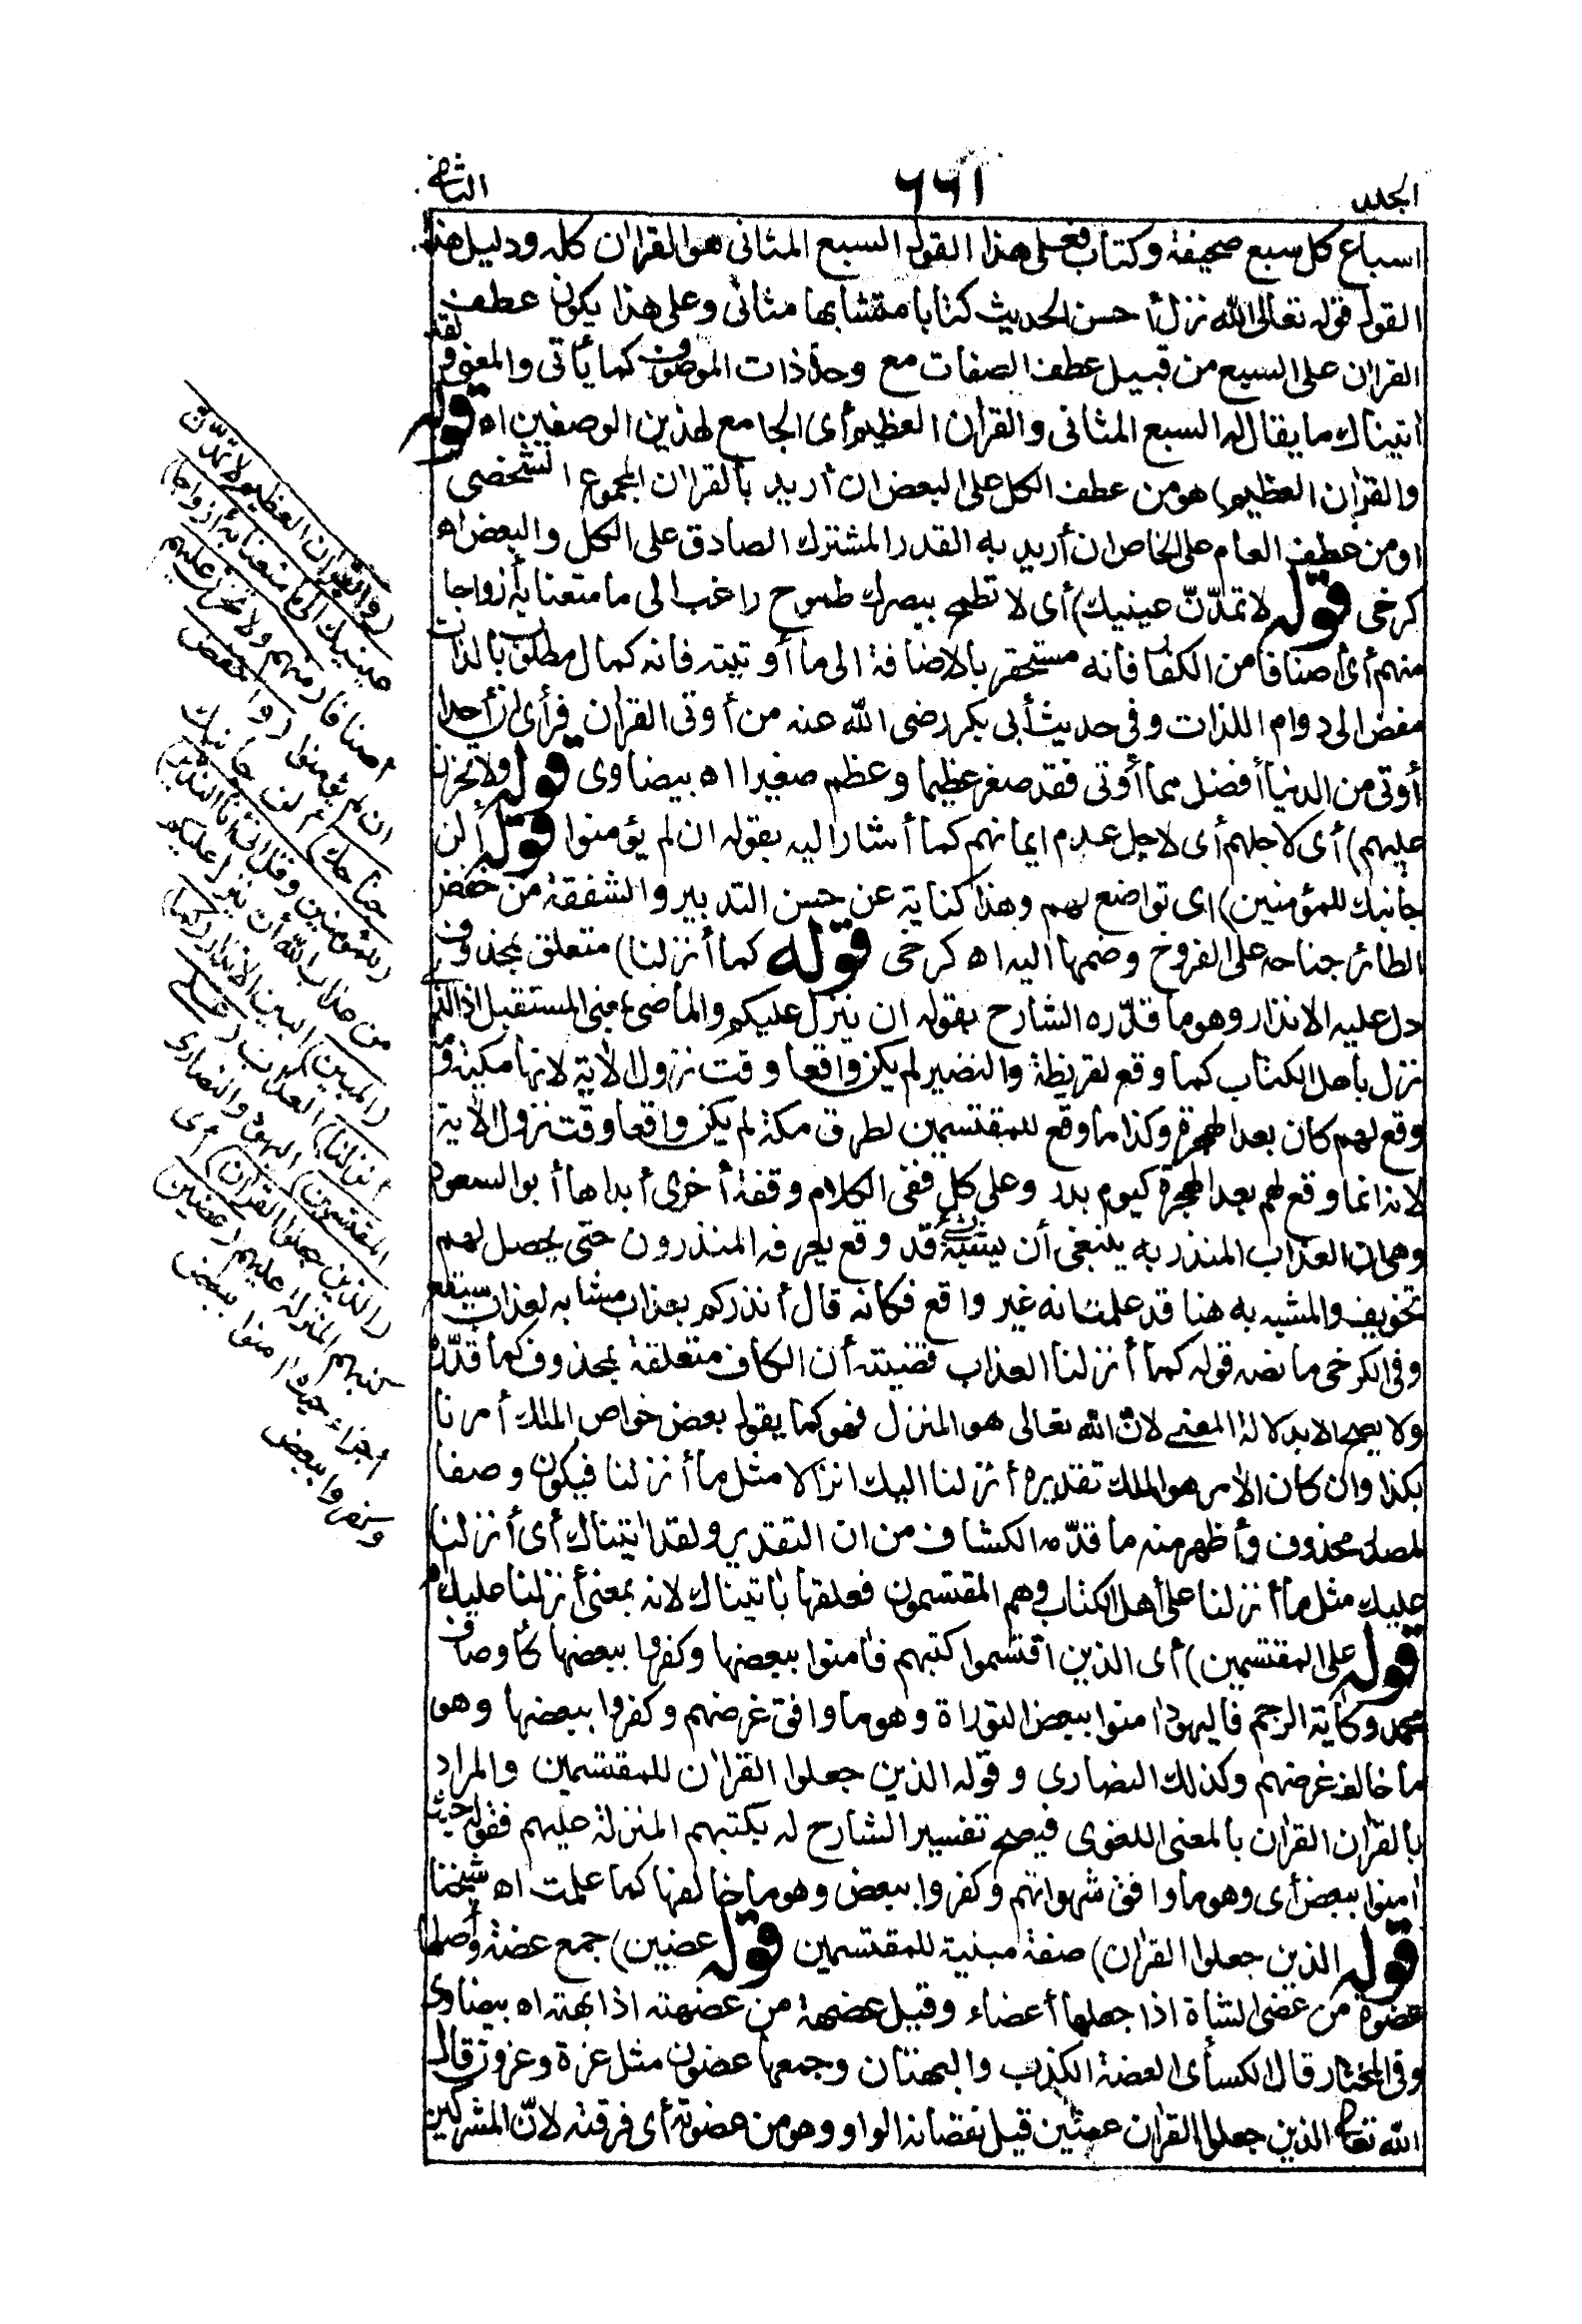 الجلد
٦٦١
الثانى
اسباع كل سبع صحيفة وكتاب فعلى هذا القول السبع المثانى هو القرأن كله ودليل هذا
القول قوله تعالى الله نزل أحسن الحديث كتابا متشابها مثانى وعلى هذا يكون عطف
القرأن على السبع من قبيل عطف الصفات مع وحدة ذات الموصوف كما يأتى والمعنى ولقد
اتيناك ما يقال له السبع المثانى والقرأن العظيم أى الجامع لهذين الوصفين اه قوله
والقرأن العظيم) هو من عطف الكل على البعض ان أريد بالقرأن المجموع الشخصى
او من عطف العام على الخاص ان أريد به القدر المشترك الصادق على الكل والبعض اه
كرخى قوله لا تمدّنّ عينيك) أى لا تطمح ببصرك طموح راغب الى ما متعنا به أزواجا
منهم أى أصنافا من الكفار فانه مستحقر بالاضافة الى ما أوتيته فانه كمال مطلوب بالذات
مفض الى دوام اللذات وفى حديث أبى بكر رضى الله عنه من أوتى القرأن فرأى ان أحدا
أوتى من الدنيا أفضل مما أوتى فقد صغر عظيما وعظم صغيرا اه بيضاوى قوله ولا تحزن
عليهم) أى لاجلهم أى لاجل عدم ايمانهم كما أشار اليه بقوله ان لم يؤمنوا قوله ألن
جانبك للمؤمنين) اى تواضع لهم وهذا كناية عن حسن التدبير والشفقة من خفض
الطائر جناحه على الفروخ وضمها اليه اه كرخى قوله كما أنزلنا) متعلق بمحذوف
دل عليه الانذار وهو ما قدّره الشارح بقوله ان ينزل عليكم والماضى بمعنى المستقبل اذ الذى
نزل باهل الكتاب كما وقع لقريظة والنضير لم يكن واقعا وقت نزول الأية لانها مكية وما
وقع لهم كان بعد الهجرة وكذا ما وقع للمقتسمين لطرق مكة لم يكن واقعا وقت نزول الأية
لانه انما وقع لهم بعد الهجرة كيوم بدر وعلى كل ففى الكلام وقفة أخرى أبداها أبو السعود
وهى ان العذاب المنذر به ينبغى أن يشبه بشئ قد وقع يعرفه المنذرون حتى يحصل لهم
تخويف والمشبه به هنا قد علمت انه غير واقع فكانه قال أنذركم بعذاب مشابه لعذاب سيقع
وفى الكرخى ما نصه قوله كما أنزلنا العذاب قضيته أن الكاف متعلقة بمحذوف كما قدّره
ولا يصح الا بدلالة المعنى لانّ الله تعالى هو المنزل فهو كما يقول بعض خواص الملك أمرنا
بكذا وان كان الأمر هو الملك تقديره أنزلنا اليك انزالا مثل ما أنزلنا فيكون وصفا
لمصدر محذوف وأظهر منه ما قدّمه الكشاف من ان التقدير ولقد اتيناك أى أنزلنا
عليك مثل ما أنزلنا على أهل الكتاب وهم المقتسمون فعلقها باتيناك لانه بمعنى أنزلنا عليك اه
قوله على المقتسمين) أى الذين اقتسموا كتبهم فأمنوا ببعضها وكفروا ببعضها كأوصاف
محمد وكأية الرجم فاليهود امنوا ببعض التوراة وهو ما وافق غرضهم وكفروا ببعضها وهو
ما خالف غرضهم وكذلك النصارى وقوله الذين جعلوا القرأن للمقتسمين والمراد
بالقرأن القرأن بالمعنى اللغوى فيصح تفسير الشارح له بكتبهم المنزلة عليهم فقوله حيث
امنوا ببعض أى وهو ما وافق شهواتهم وكفروا ببعض وهو ما خالفها كما علمت اه شيخنا
قوله الذين جعلوا القرأن) صفة مبنية للمقتسمين قوله عضين) جمع عضة وأصلها
عضوة من عضى الشاة اذا جعلها أعضاء وقيل عضهة من عضهته اذا بهته اه بيضاوى
وفى المختار قال الكسائى العضة الكذب والبهتان وجمعها عضون مثل عزة وعزون قال
الله تعالى الذين جعلوا القرأن عضين قيل نقصانه الواو وهو من عضوته أى فرقته لانّ المشركين
(والقرأن العظيم لا تمدّنّ
عينيك الى ما متعنا به أزواجا)
أصنافا (منهم ولا تحزن عليهم)
ان لم يؤمنوا (واخفض
جناحك) ألن جانبك
(للمؤمنين وقل انى أنا النذير)
من عذاب الله أن ينزل عليكم
(المبين) البين الانذار (كما
أنزلنا) العذاب (على
المقتسمين) اليهود والنصارى
(الذين جعلوا القرأن) أى
كتبهم المنزلة عليهم (عضين)
أجزاء حيث امنوا ببعض
وكفروا ببعض